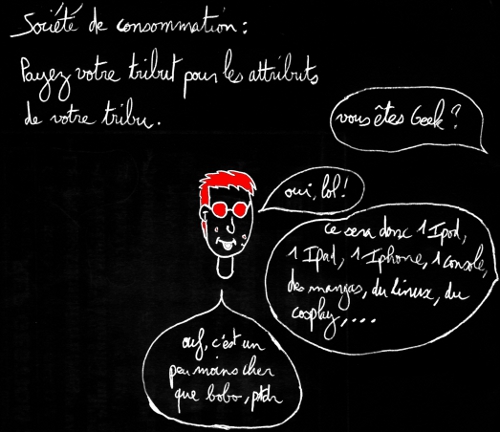 Société de consommation :
Payez votre tribut pour les attributs
de votre tribu.
vous êtes Geek ?
oui, lol !
ce sera donc 1 Ipod,
1 Ipad, 1 Iphone, 1 console,
des mangas, du linux, du
cosplay, ...
ouf, c'est un
peu moins cher
que bobo, ptdr